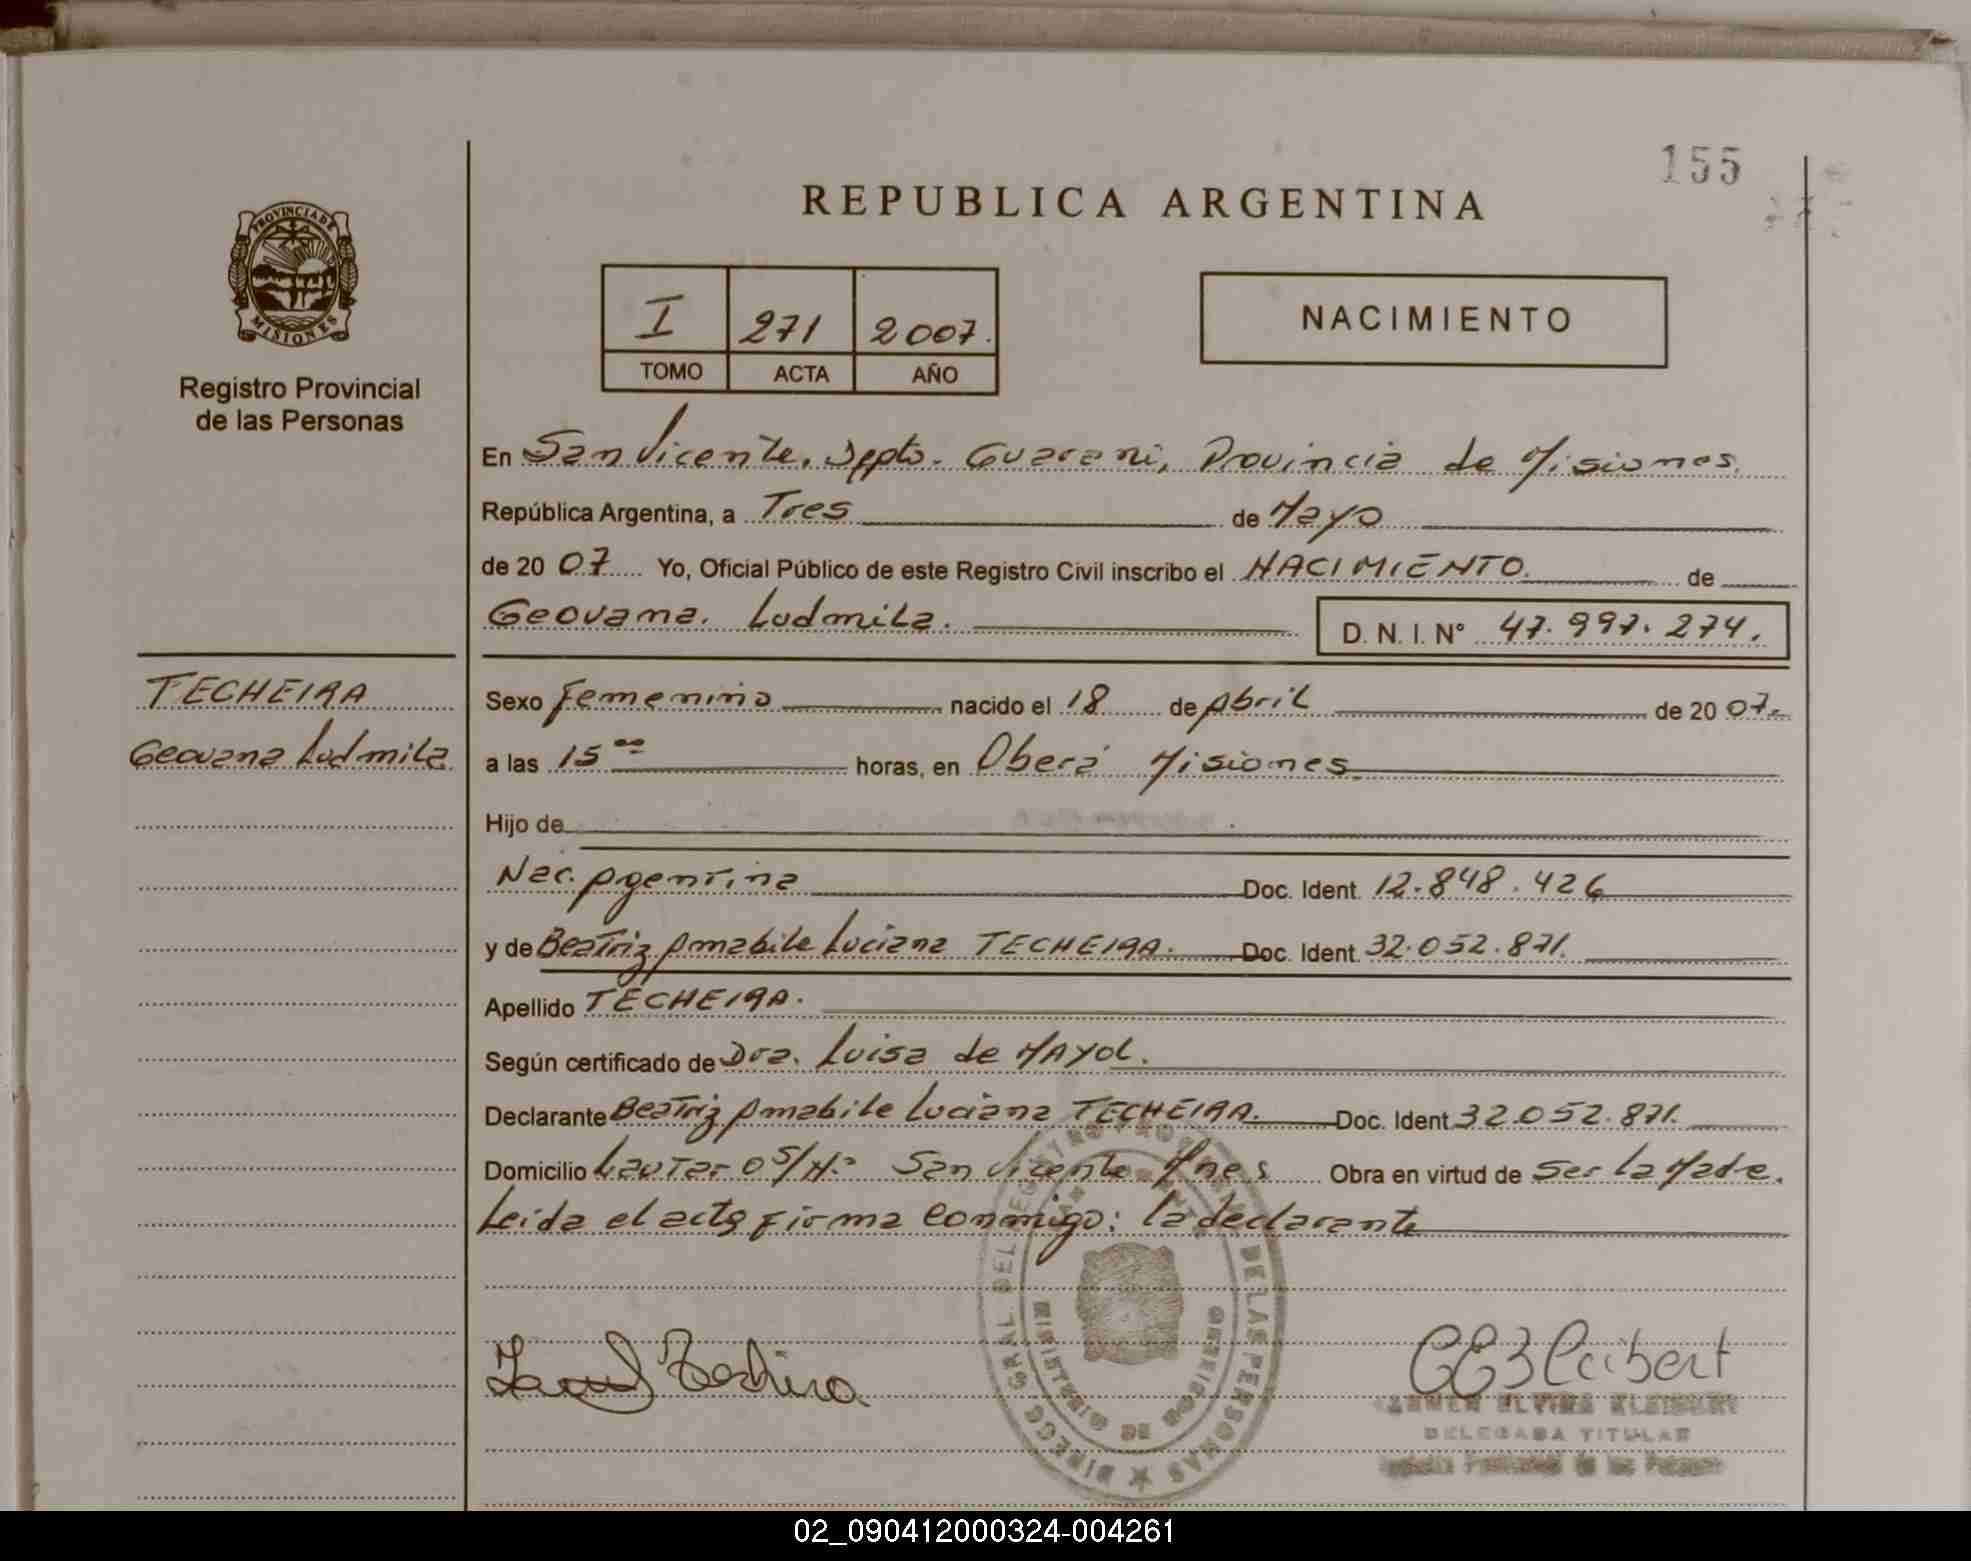 155
REPUBLICA ARGENTINA
PROVINCIA DE MISIONES
Registro Provincial
de las Personas
I 271 2007.
TOMO ACTA AÑO
NACIMIENTO
En San Vicente, Dpto. Guarani, Provincia de Misiones.
República Argentina, a Tres de Mayo
de 2007 Yo, Oficial Público de este Registro Civil inscribo el NACIMIENTO. de
Geovana. Ludmila. D. N. I. N° 47.997.274.
TECHEIRA
Geovana Ludmila
Sexo Femenino nacido el 18 de Abril de 2007.
a las 15 00 horas, en Oberá Misiones.
Hijo de
Nac. Agentina Doc. Ident. 12.848.426
y de Beatriz Amabile Luciana TECHEIRA. Doc. Ident. 32.052.871.
Apellido TECHEIRA.
Según certificado de Dra. Luisa de MAYOL.
Declarante Beatriz Amabile Luciana TECHEIRA. Doc. Ident. 32.052.871.
Domicilio Lautaro S/N.° San Vicente Mnes Obra en virtud de Ser la Madre.
Leida el acta firma conmigo: la declarante
DIRECC GRAL. DEL REGISTRO PROVINCIAL DE LAS PERSONAS
MINISTERIO DE GOBIERNO
DELEGADA TITULAR
Registro Provincial de las Personas
02_090412000324-004261